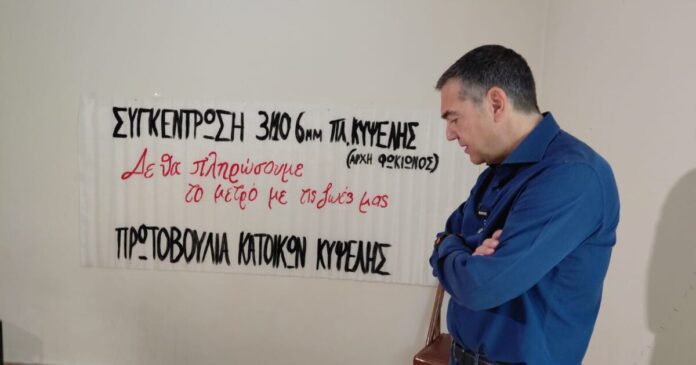 ΣΥΓΚΕΝΤΡΩΣΗ 3/10 6μμ ΠΛ. ΚΥΨΕΛΗΣ
(ΑΡΧΗ ΦΩΚΙΩΝΟΣ)
Δε θα πληρώσουμε
το μετρό με τις ζωές μας
ΠΡΩΤΟΒΟΥΛΙΑ ΚΑΤΟΙΚΩΝ ΚΥΨΕΛΗΣ